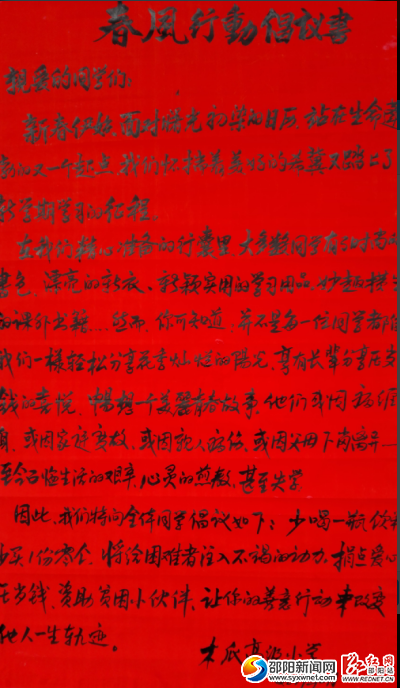 春风行動倡议書
親爱的同学们:
新春伊始,面对曙光初染的日历,站在生命远
的又一个起点,我们怀揣着美好的希冀又踏上了
新学期学习的征程。
在我们精心准备的行囊里,大多数同学有时尚的
書包、漂亮的新衣、新颖实用的学习用品、妙趣横
的课外書籍……然而,你可知道,并不是每一位同学者
我们一様轻松分享花季灿烂的陽光,享有长輩分享压岁
钱的喜悦,暢想千美麗青春故事。他们或因
或因家庭变故,或因親人病,或因父母下崗離异
至今面临生活的艰辛,心灵的煎熬,甚至失学。
因此,我们特向全体同学倡议如下:少喝一瓶
少买1份零食,将给困难者注入不竭的动力。捐点爱心
压岁钱,資助貧困小伙伴,让你的善意行动来改变
他人一生轨迹。
木瓜 小学
邵阳新闻网
www.syxwnet.com
红网
邵阳站
REDNET.CN